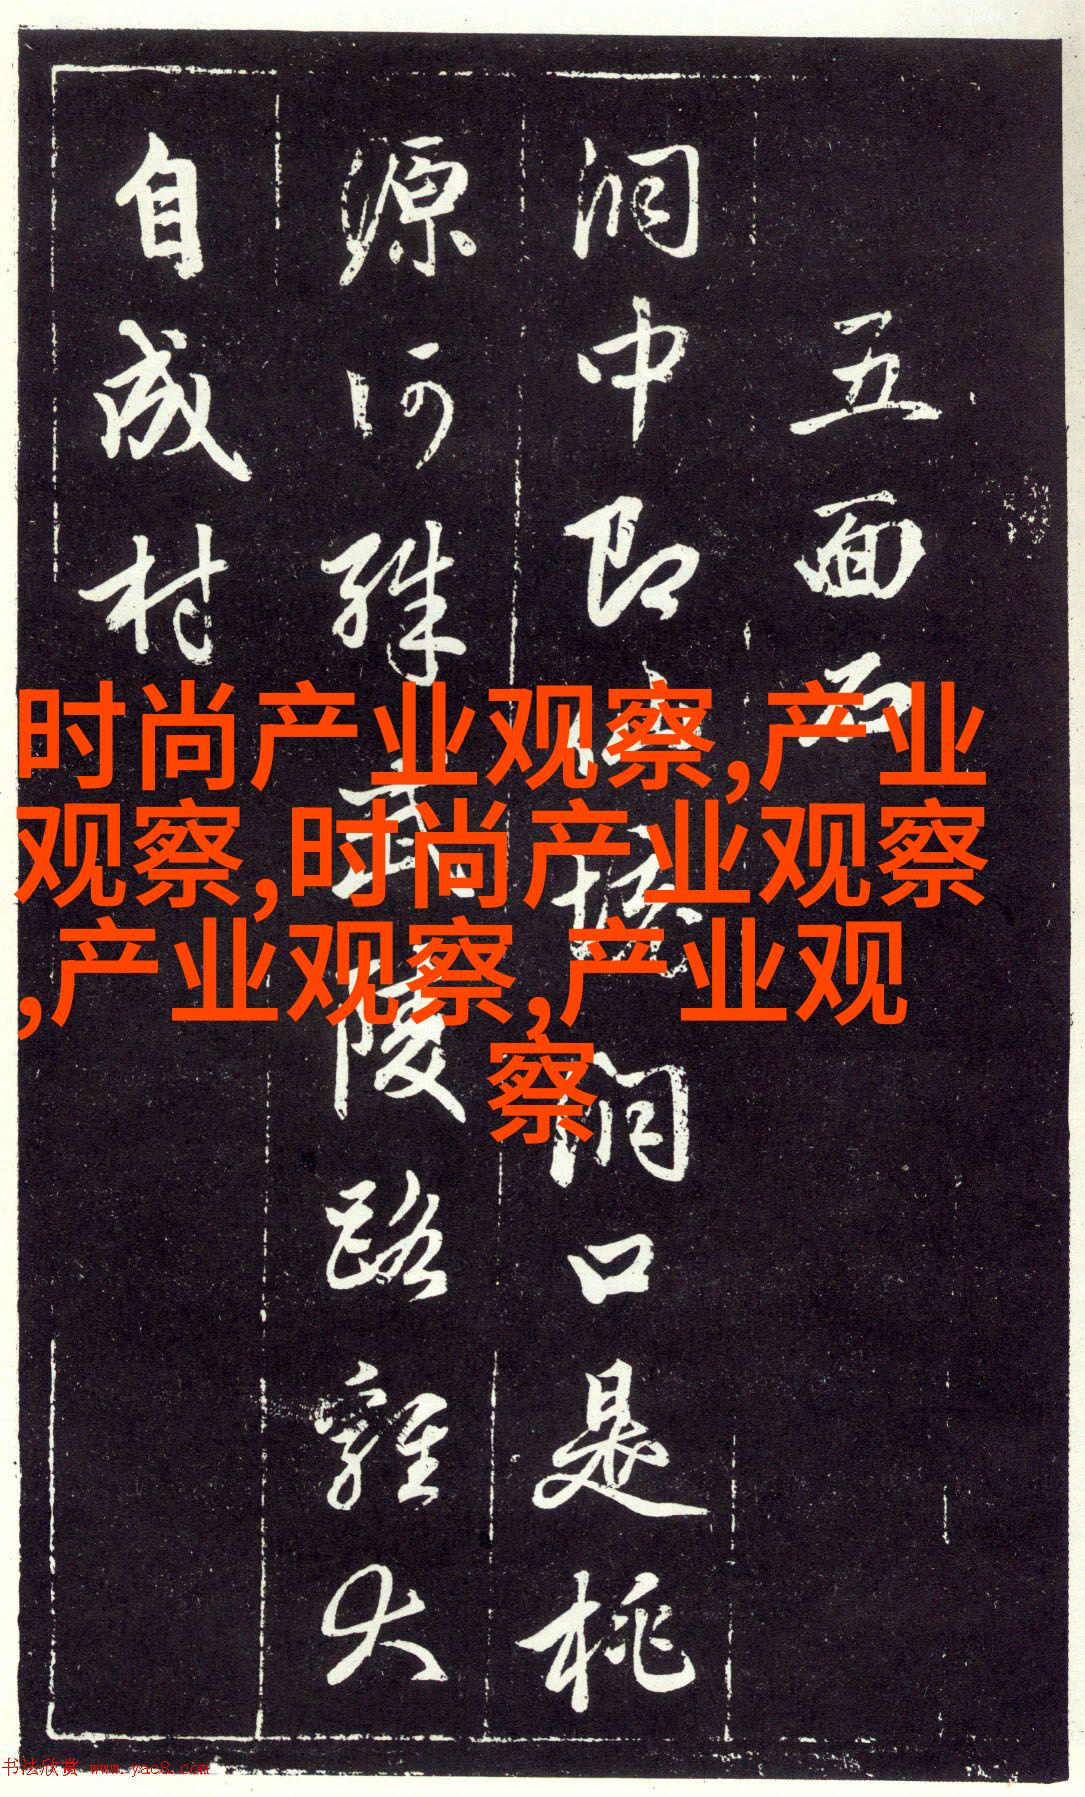 五面
洞中即仙境洞口是桃
源何殊武陵路雞犬
自成村
时尚产业观察,产业
观察,时尚产业观察
,产业观察,产业观
察
书法欣赏 www.yac8.com